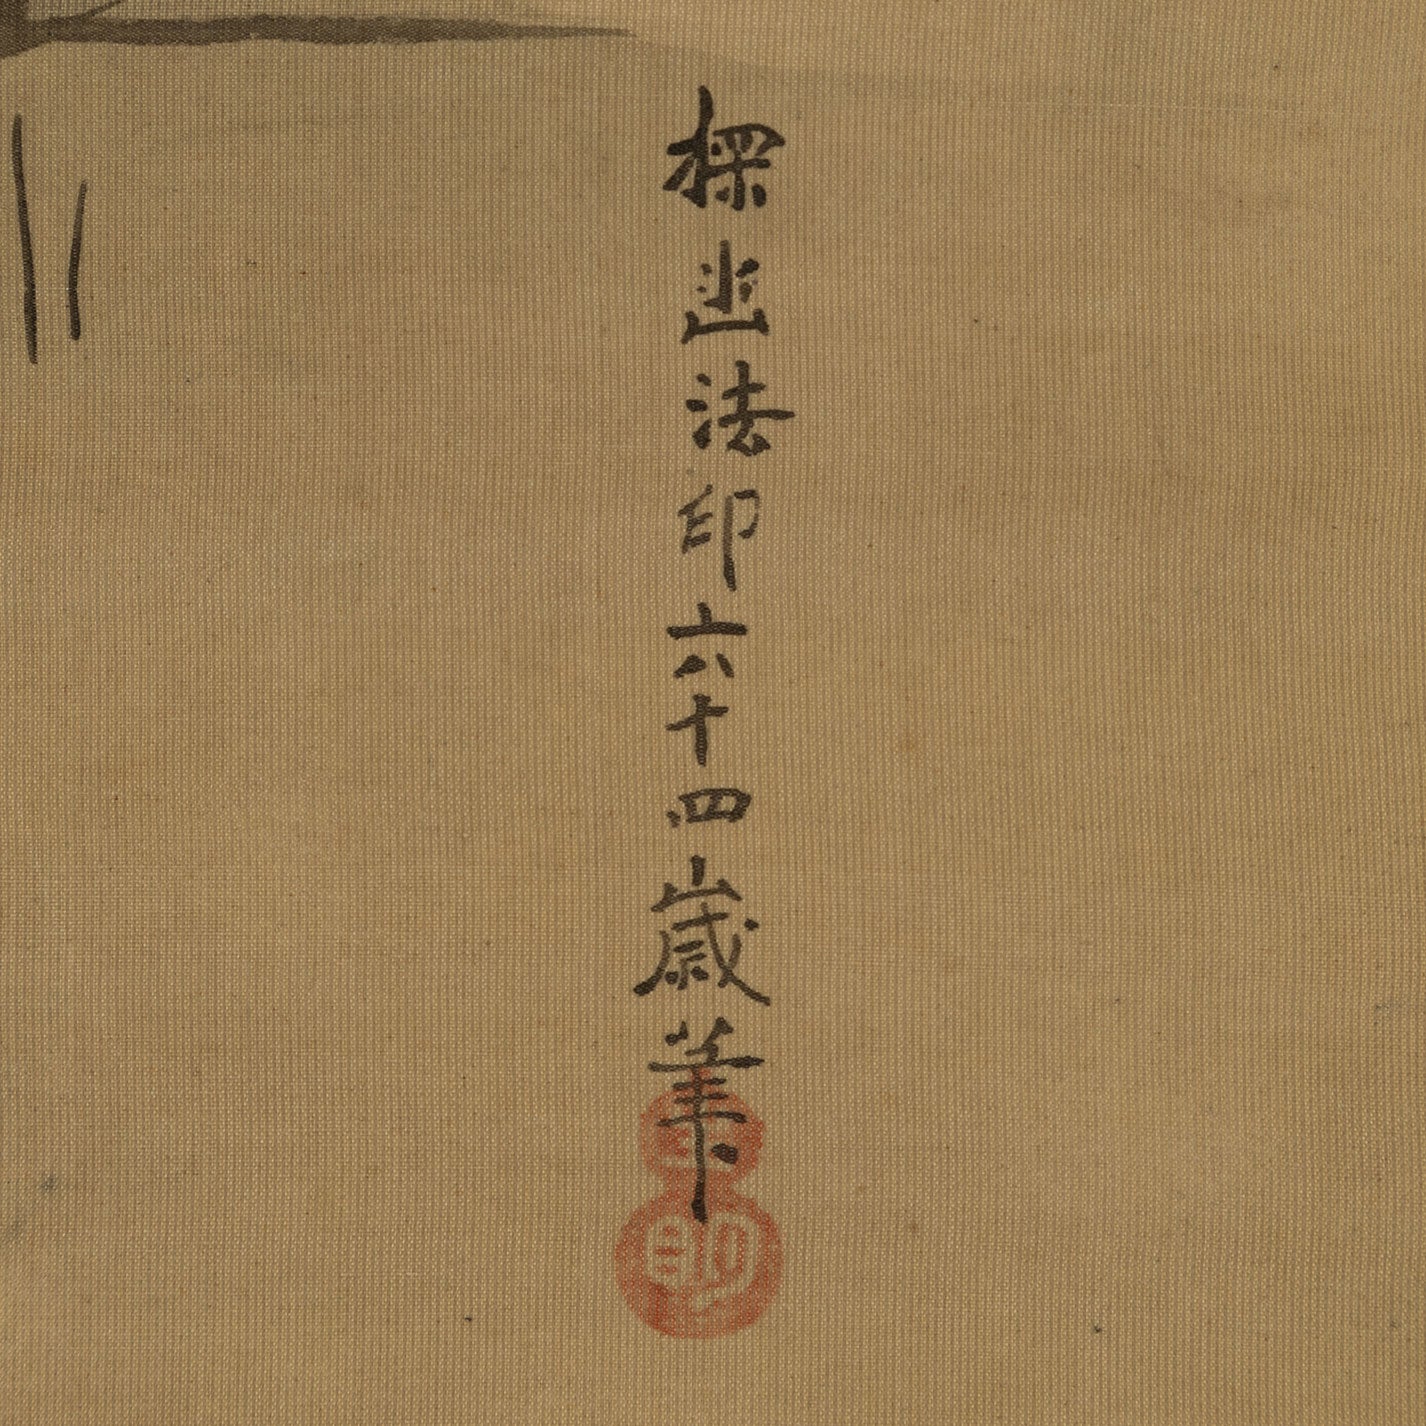 探幽法印六十四歳筆